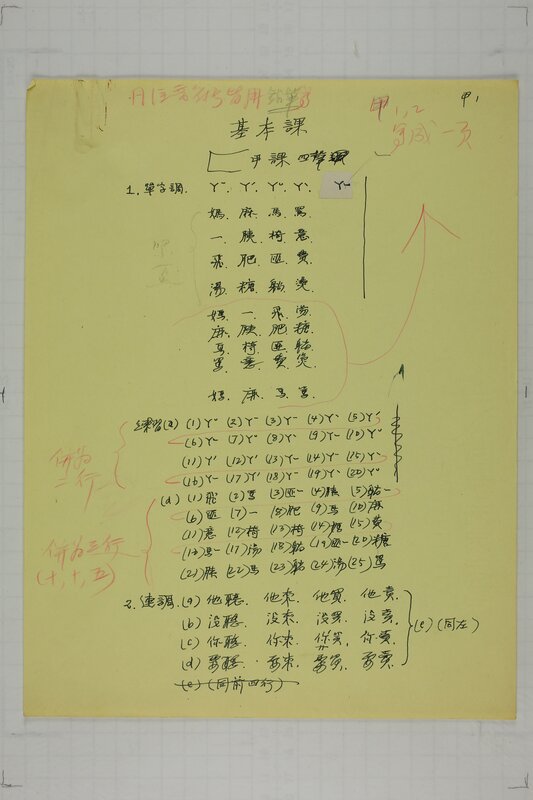 甲1
甲 1, 2
基本課
甲課 四聲調
1. 單字調.
媽. 麻. 馬. 罵.
一. 胰. 椅. 意.
飛. 肥. 匪. 費.
湯. 糖. 躺. 燙.
媽. 一. 飛. 湯
麻. 胰. 肥. 糖
馬. 椅. 匪. 躺
罵. 意. 費. 燙.
媽. 麻. 馬. 罵.
練習(a) (1) ㄚ (2) ㄚ (3) ㄚ (4) ㄚ (5) ㄚ
(6) ㄚ (7) ㄚ (8) ㄚ (9) ㄚ (10) ㄚ
(11) ㄚ (12) ㄚ (13) ㄚ (14) ㄚ (15) ㄚ
(16) ㄚ (17) ㄚ (18) ㄚ (19) ㄚ (20) ㄚ
併為二行
(1) 飛 (2) 罵 (3) 匪 (4) 胰 (5) 躺
(6) 匪 (7) 一 (8) 肥 (9) 馬 (10) 麻
(11) 意 (12) 椅 (13) 椅 (14) 糖 (15) 費
(16) 馬 (17) 湯 (18) 躺 (19) 匪 (20) 糖
(21) 胰 (22) 馬 (23) 躺 (24) 湯 (25) 罵
併為三行
(十,十,五)
2. 連調. (a) 他聽. 他來. 他買. 他賣.
(b) 沒聽. 沒來. 沒買. 沒賣.
(c) 你聽. 你來. 你買. 你賣.
(d) 要聽. 要來. 要買. 要賣.
(e) (同左)
(e) (同前四行)